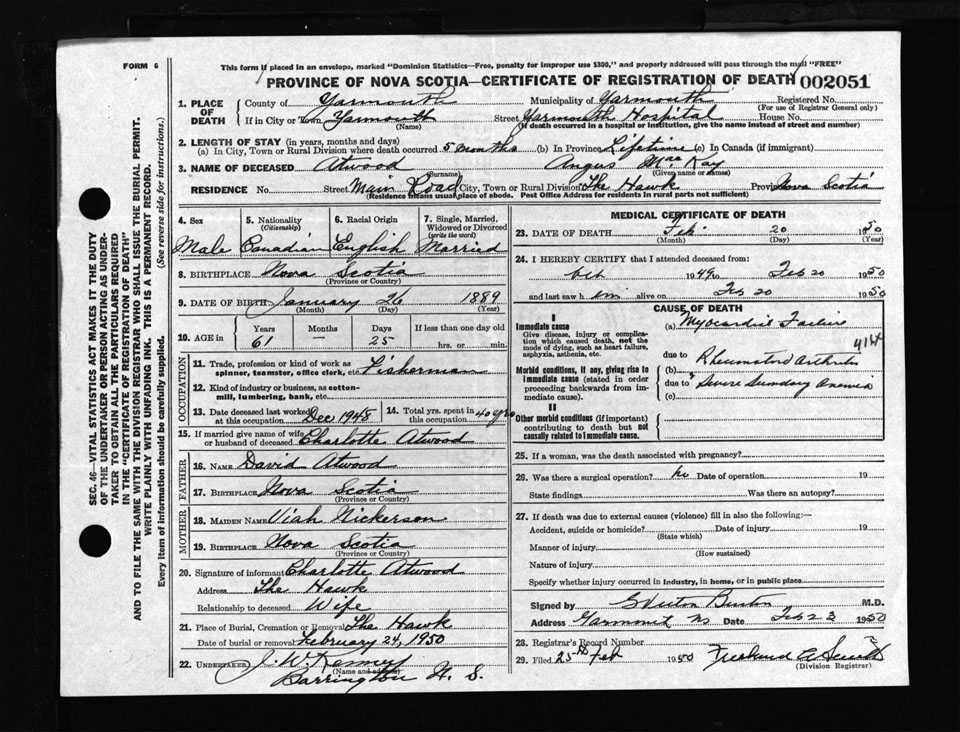 FORM 6
This form if placed in an envelope, marked "Dominion Statistics—Free, penalty for improper use $300," and properly addressed will pass through the mail "FREE"
PROVINCE OF NOVA SCOTIA—CERTIFICATE OF REGISTRATION OF DEATH 002051
1. PLACE OF DEATH County of Yarmouth Municipality of Yarmouth Registered No.
(For use of Registrar General only)
If in City or Town Yarmouth Street Yarmouth Hospital House No.
(Name) (If death occurred in a hospital or institution, give the name instead of street and number)
2. LENGTH OF STAY (in years, months and days)
(a) In City, Town or Rural Division where death occurred 5 months (b) In Province Lifetime (c) In Canada (if immigrant)
3. NAME OF DECEASED Atwood Angus MacKay
(Surname) (Given name or names)
RESIDENCE No. Street Main Road City, Town or Rural Division The Hawk Province Nova Scotia
(Residence means usual place of abode. Post Office Address for residents in rural parts not sufficient)
4. Sex 5. Nationality (Citizenship) 6. Racial Origin 7. Single, Married, Widowed or Divorced (write the word)
Male Canadian English Married
8. BIRTHPLACE Nova Scotia
(Province or Country)
9. DATE OF BIRTH January 26 1889
(Month) (Day) (Year)
10. AGE in Years Months Days If less than one day old
61 — 25 hrs. or min.
OCCUPATION
11. Trade, profession or kind of work as spinner, teamster, office clerk, etc. Fisherman
12. Kind of industry or business, as cotton-mill, lumbering, bank, etc.
13. Date deceased last worked at this occupation Dec 1948 14. Total yrs. spent in this occupation 40 yrs
15. If married give name of wife or husband of deceased Charlotte Atwood
FATHER
16. NAME David Atwood
17. BIRTHPLACE Nova Scotia
(Province or Country)
MOTHER
18. MAIDEN NAME Viah Nickerson
19. BIRTHPLACE Nova Scotia
(Province or Country)
20. Signature of informant Charlotte Atwood
Address The Hawk
Relationship to deceased Wife
21. Place of Burial, Cremation or Removal The Hawk
Date of burial or removal February 24, 1950
22. UNDERTAKER J. W. Kenney
(Name and address)
Barrington N. S.
MEDICAL CERTIFICATE OF DEATH
23. DATE OF DEATH Feb 20 1950
(Month) (Day) (Year)
24. I HEREBY CERTIFY that I attended deceased from:
Oct 1949 to Feb 20 1950
and last saw him alive on Feb 20 1950
CAUSE OF DEATH
I
Immediate cause
Give disease, injury or complication which caused death, not the mode of dying, such as heart failure, asphyxia, asthenia, etc.
(a) Myocardial Failure
due to
Morbid conditions, if any, giving rise to immediate cause (stated in order proceeding backwards from immediate cause).
(b) Rheumatoid Arthritis
due to
(c) Severe Secondary Anemia
II
Other morbid conditions (if important) contributing to death but not causally related to immediate cause.
25. If a woman, was the death associated with pregnancy?
26. Was there a surgical operation? No Date of operation 19
State findings Was there an autopsy?
27. If death was due to external causes (violence) fill in also the following:—
Accident, suicide or homicide? Date of injury 19
(State which)
Manner of injury
(How sustained)
Nature of injury
Specify whether injury occurred in industry, in home, or in public place
Signed by Burton M.D.
Address Yarmouth NS Feb 23 1950
28. Registrar's Record Number
29. Filed 25th Feb 1950
(Division Registrar)
SEC. 46—VITAL STATISTICS ACT MAKES IT THE DUTY
OF THE UNDERTAKER OR PERSON ACTING AS UNDER-
TAKER TO OBTAIN ALL THE PARTICULARS REQUIRED
IN THE "CERTIFICATE OF REGISTRATION OF DEATH"
AND TO FILE THE SAME WITH THE DIVISION REGISTRAR WHO SHALL ISSUE THE BURIAL PERMIT.
WRITE PLAINLY WITH UNFADING INK. THIS IS A PERMANENT RECORD.
Every item of information should be carefully supplied. (See reverse side for instructions.)